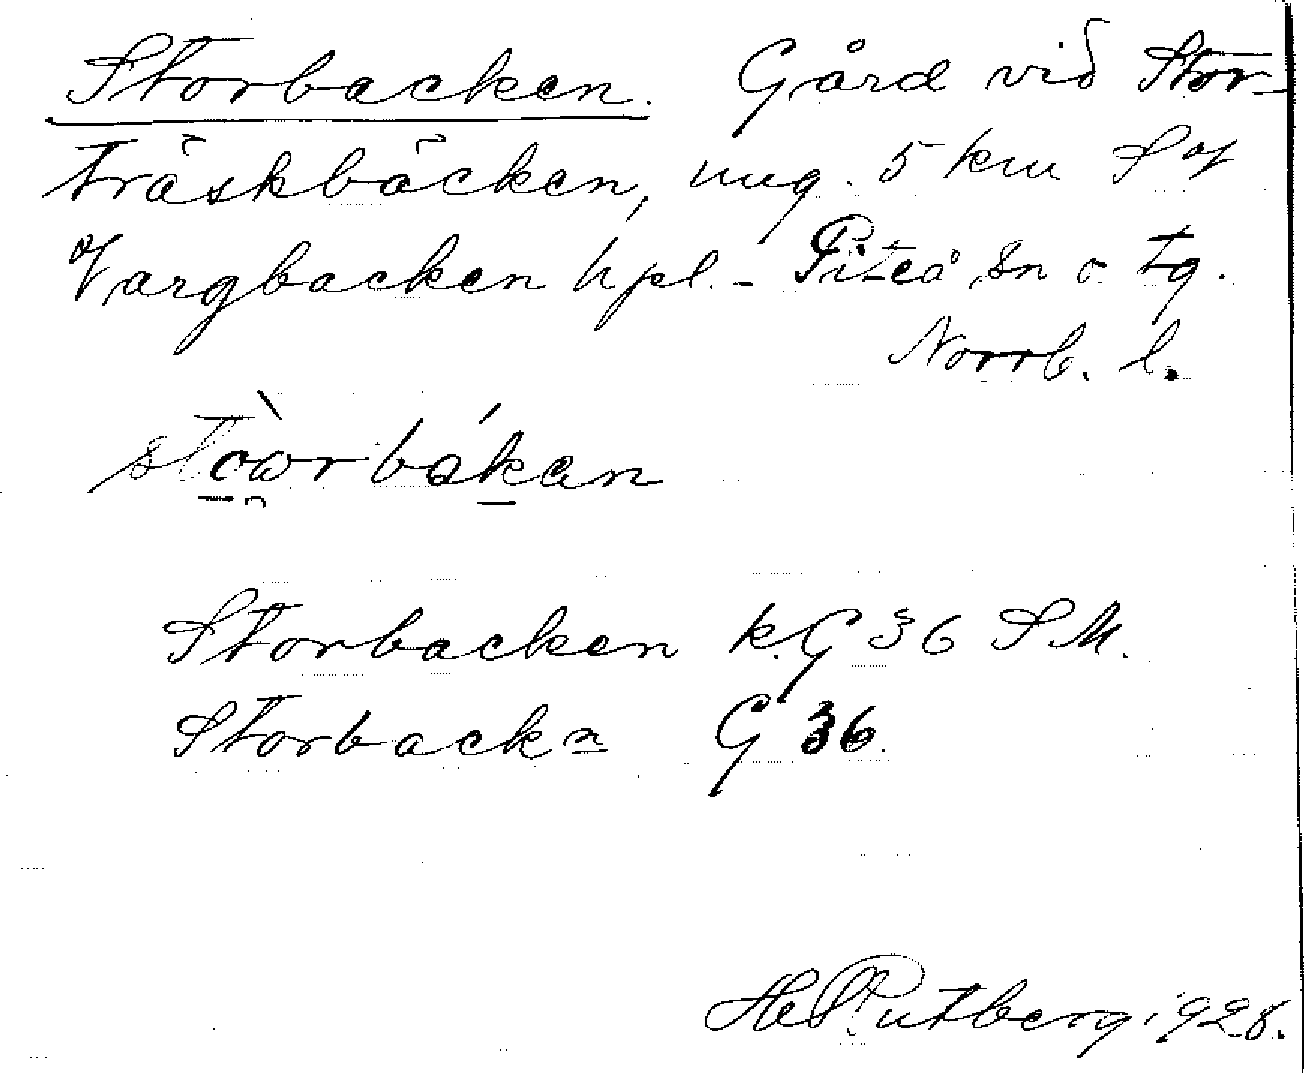 Storbacken. Gård vid Stor-
träskbäcken, ung. 5 km S of
Vargbacken hpl. - Piteå sn o tg.
Norrb. l.
Storbacken k. G 36 S M.
Storbackn G 36.
1928.